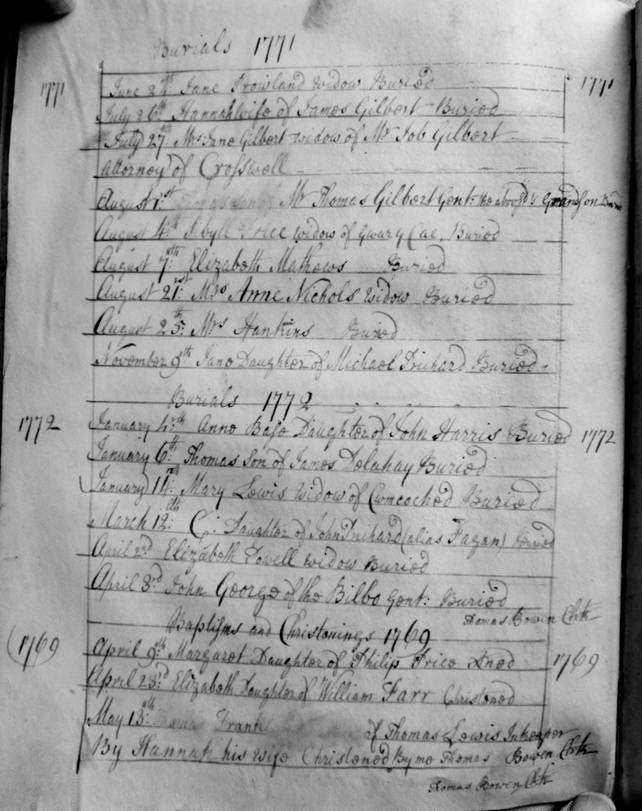 Burials 1771
1771 June 24th Jane Prowland widow Buried 1771
July 26th Hannah wife of James Gilbert Buried
July 27th Mrs Jane Gilbert widow of Mr Job Gilbert
Attorney of Crosswell
August 1st Mr Thomas Gilbert Gent: the above Grandson
August 4th Sibyll widow of Buried
August 7th Elizabeth Mathews Buried
August 21st Mrs Anne Nichols widow Buried
August 25th Mrs Hankins Buried
November 9th Jane Daughter of Michael Prichard Buried
Burials 1772
1772 January 4th Anne Daughter of John Harris Buried 1772
January 6th Thomas Son of James Delahay Buried
January 14th Mary Lewis widow of Cwncoched Buried
March 12th C: Daughter of John Prichard (alias Fagan) Buried
April 2d Elizabeth Powell widow Buried
April 3d John George of the Bilbo Gent: Buried
Thomas Bowen Clerk
Baptisms and Christenings 1769
1769 April 9th Margaret Daughter of Philip Price 1769
April 23d Elizabeth Daughter of William Farr Christened
May 13th Frank of Thomas Lewis Inkeeper
By Hannah his wife Christened By me Thomas Bowen Clerk
Thomas Bowen Clerk